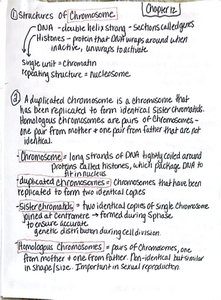 Chapter 12
① Structures of Chromosome
DNA - double helix strong - Sections called genes
Histones - protein that DNA wraps around when
inactive, unwraps to activate
Single unit = chromatin
repeating structure = nucleosome
② A duplicated chromosome is a chromosome that
has been replicated to form identical sister chromatids.
Homologous chromosomes are pairs of chromosomes -
one pair from mother & one pair from father that are not
identical.
- Chromosome = long strands of DNA tightly coiled around
proteins called histones, which package DNA to
fit in nucleus
- duplicated chromosomes = Chromosomes that have been
replicated to form two identical copies
- Sister chromatids = two identical copies of single chromosome
joined at centromere → formed during S phase
to ensure accurate
genetic distribution during cell division.
- Homologous Chromosomes = pairs of chromosomes, one
from mother & one from father. Non-identical but similar
in shape/size. Important in sexual reproduction.